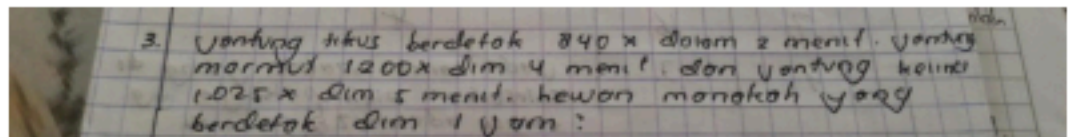 3. Jantung tikus berdetak 840 x dalam 2 menit. Jantung
marmut 1200x dlm 4 menit. dan jantung kelinci
1.025 x dlm 5 menit. hewan manakah yang
berdetak dlm 1 jam?